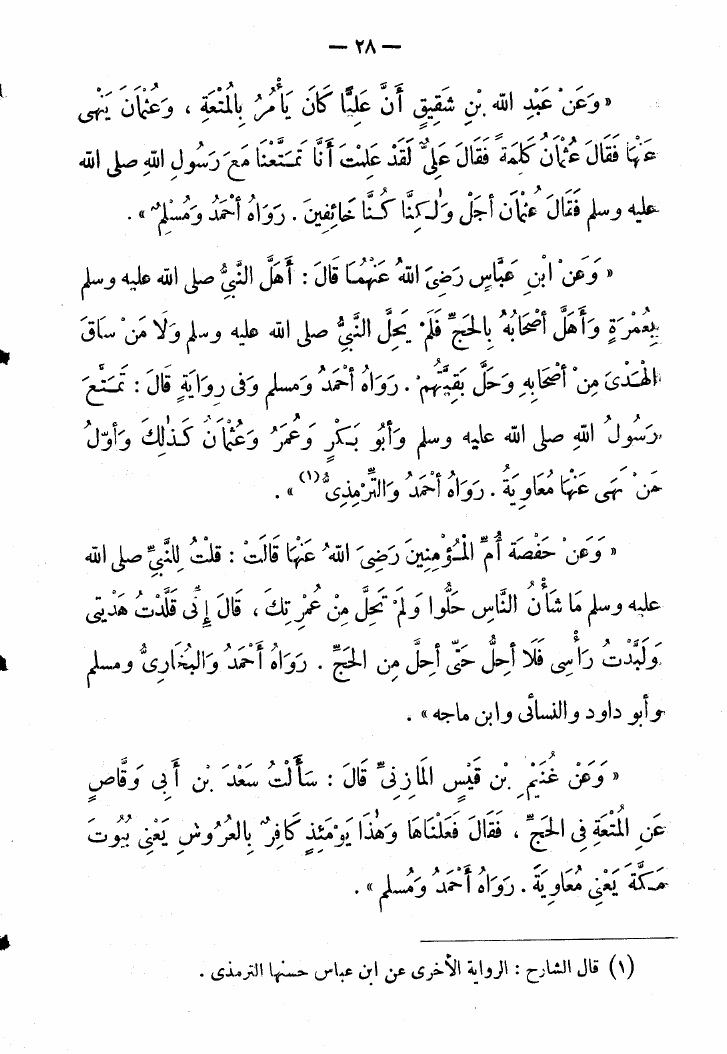 — ٢٨ —
« وَعَنْ عَبْدِ اللهِ بْنِ شَقِيقٍ أَنَّ عَلِيًّا كَانَ يَأْمُرُ بِالْمُتْعَةِ ، وَعُثْمَانَ يَنْهَى
عَنْهَا فَقَالَ عُثْمَانُ كَلِمَةً فَقَالَ عَلِيٌّ لَقَدْ عَلِمْتَ أَنَّا تَمَتَّعْنَا مَعَ رَسُولِ اللهِ صلى الله
عليه وسلم فَقَالَ عُثْمَان أَجَلْ وَلٰكِنَّا كُنَّا خَائِفِينَ . رَوَاهُ أَحْمَدُ وَمُسْلِمٌ » .
« وَعَنْ ابْنِ عَبَّاسٍ رَضِيَ اللهُ عَنْهُمَا قَالَ : أَهَلَّ النَّبِيُّ صلى الله عليه وسلم
بِعُمْرَةٍ وَأَهَلَّ أَصْحَابُهُ بِالْحَجِّ فَلَمْ يَحِلَّ النَّبِيُّ صلى الله عليه وسلم وَلَا مَنْ سَاقَ
الْهَدْىَ مِنْ أَصْحَابِهِ وَحَلَّ بَقِيَّتُهُمْ . رَوَاهُ أَحْمَدُ وَمسلم وَفى رِوَايَةٍ قَالَ : تَمَتَّعَ
رَسُولُ اللهِ صلى الله عليه وسلم وَأَبُو بَكْرٍ وَعُمَرُ وَعُثْمَانُ كَذٰلِكَ وَأَوَّلُ
مَنْ نَهَى عَنْهَا مُعَاوِيَةُ . رَوَاهُ أَحْمَدُ وَالتِّرْمِذِىُّ(١) » .
« وَعَنْ حَفْصَةَ أُمِّ الْمُؤْمِنِينَ رَضِىَ اللهُ عَنْهَا قَالَتْ : قلْتُ لِلنَّبِيِّ صلى الله
عليه وسلم مَا شَأْنُ النَّاسِ حَلُّوا وَلَمْ تَحِلَّ مِنْ عُمْرَتِكَ ، قَالَ إِنِّى قَلَّدْتُ هَدْيِى
وَلَبَّدْتُ رَأْسِى فَلَا أَحِلُّ حَتَّى أَحِلَّ مِن الحَجِّ . رَوَاهُ أَحْمَدُ وَالبُخَارِىُّ ومسلم
وأبو داود والنسائى وابن ماجه » .
« وَعَنْ غُنَيْمِ بْنِ قَيْسٍ الْمَازِنِيِّ قَالَ : سَأَلْتُ سَعْدَ بْن أَبِى وَقَّاصٍ
عَنِ الْمُتْعَةِ فِى الْحَجِّ ، فَقَالَ فَعَلْنَاهَا وَهٰذَا يَوْمَئِذٍ كَافِرٌ بِالْعُرُوشِ يَعْنِى بُيُوتَ
مَكَّةَ يَعْنِى مُعَاوِيَةَ . رَوَاهُ أَحْمَدُ وَمُسلم » .
(١) قال الشارح : الرواية الأخرى عن ابن عباس حسنها الترمذى .